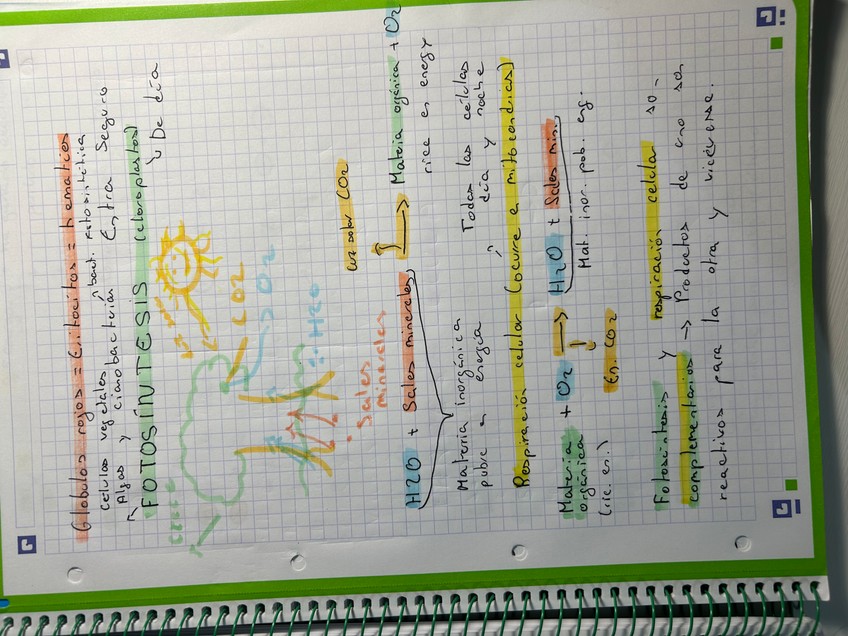 Globulos rojos = Eritocitos = hematíes
células vegetales bact. fotosintética
Algas y cianobacterias Entra Seguro
FOTOSÍNTESIS (cloroplastos)
↘ De día
CO2
O2
H2O
Sales
minerales
Luz solar CO2
H2O + Sales minerales → Materia orgánica + O2
rica en energy
Materia inorgánica
pobre en energía
Todas las células
día y noche
Respiración celular (ocurre en mitocondrias)
Materia orgánica + O2 → H2O + Sales min.
(ric. en.)
Mat. inor. pob. eng.
En. CO2
Fotosíntesis y respiración celular so-
complementarios → Productos de uno son
reactivos para la otra y viceversa.